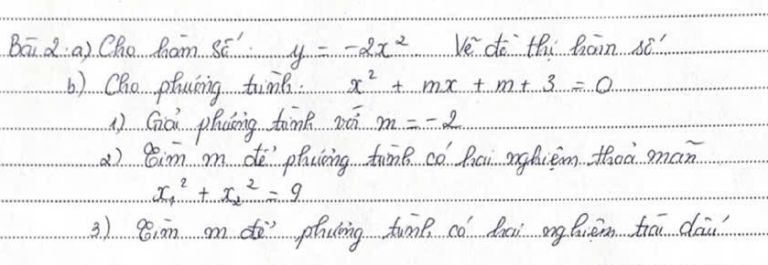 Bài 2: a) Cho hàm số: y = -2x² Vẽ đồ thị hàm số
b) Cho phương trình: x² + mx + m + 3 = 0
1) Giải phương trình với m = -2
2) Tìm m để phương trình có hai nghiệm thoả mãn
x₁² + x₂² = 9
3) Tìm m để phương trình có hai nghiệm trái dấu